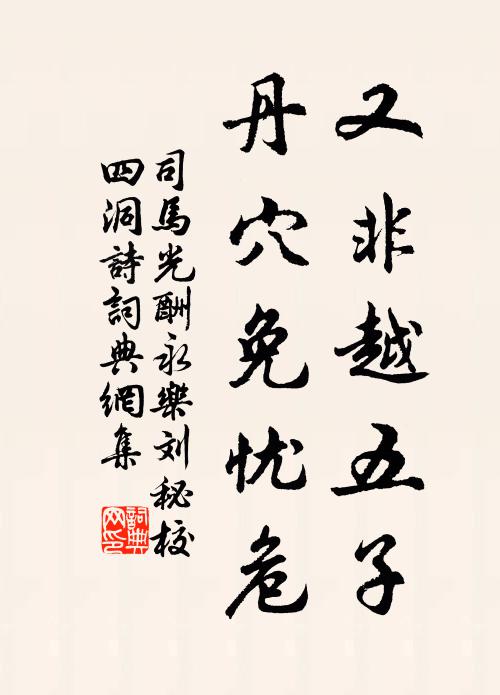 又非越五子
丹穴免忧危
司馬光酬永樂刘秘校
四洞詩詞典網集
詞典
网印